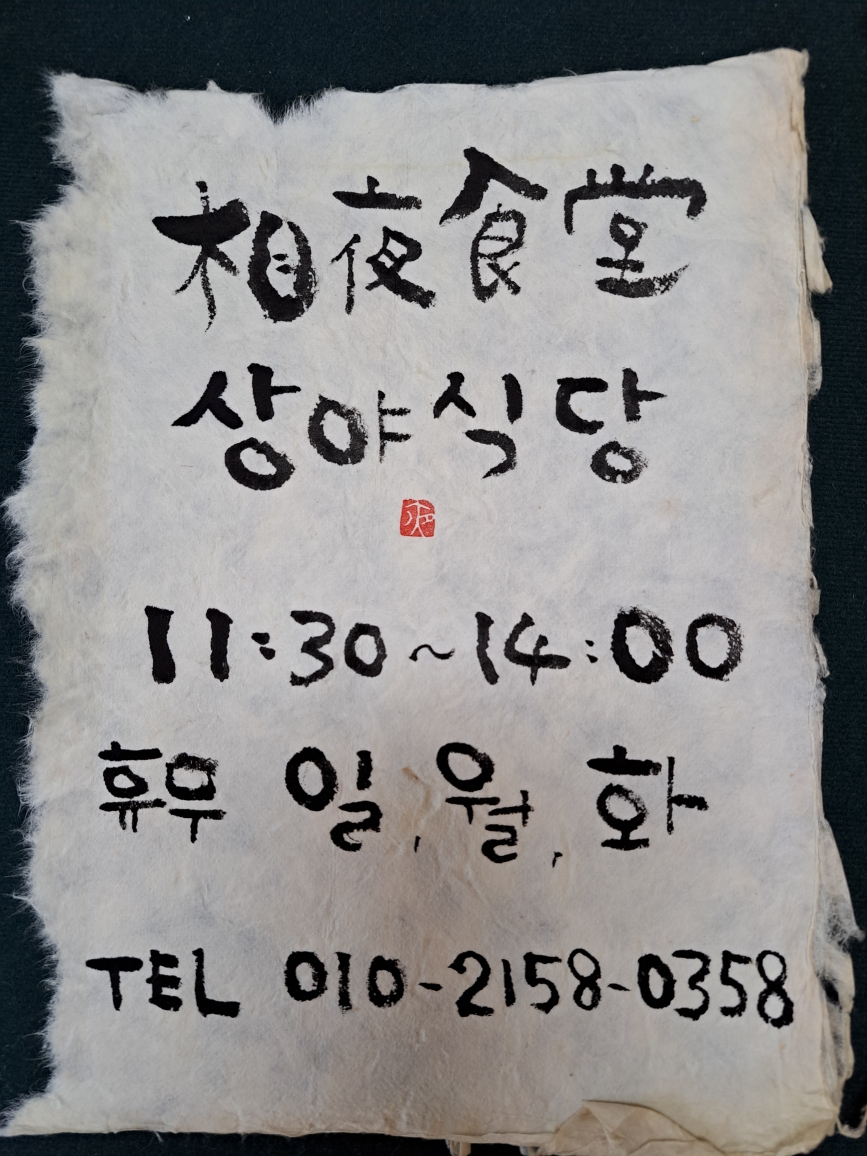 相夜食堂
상야식당
11:30~14:00
휴무 일,월,화
TEL 010-2158-0358